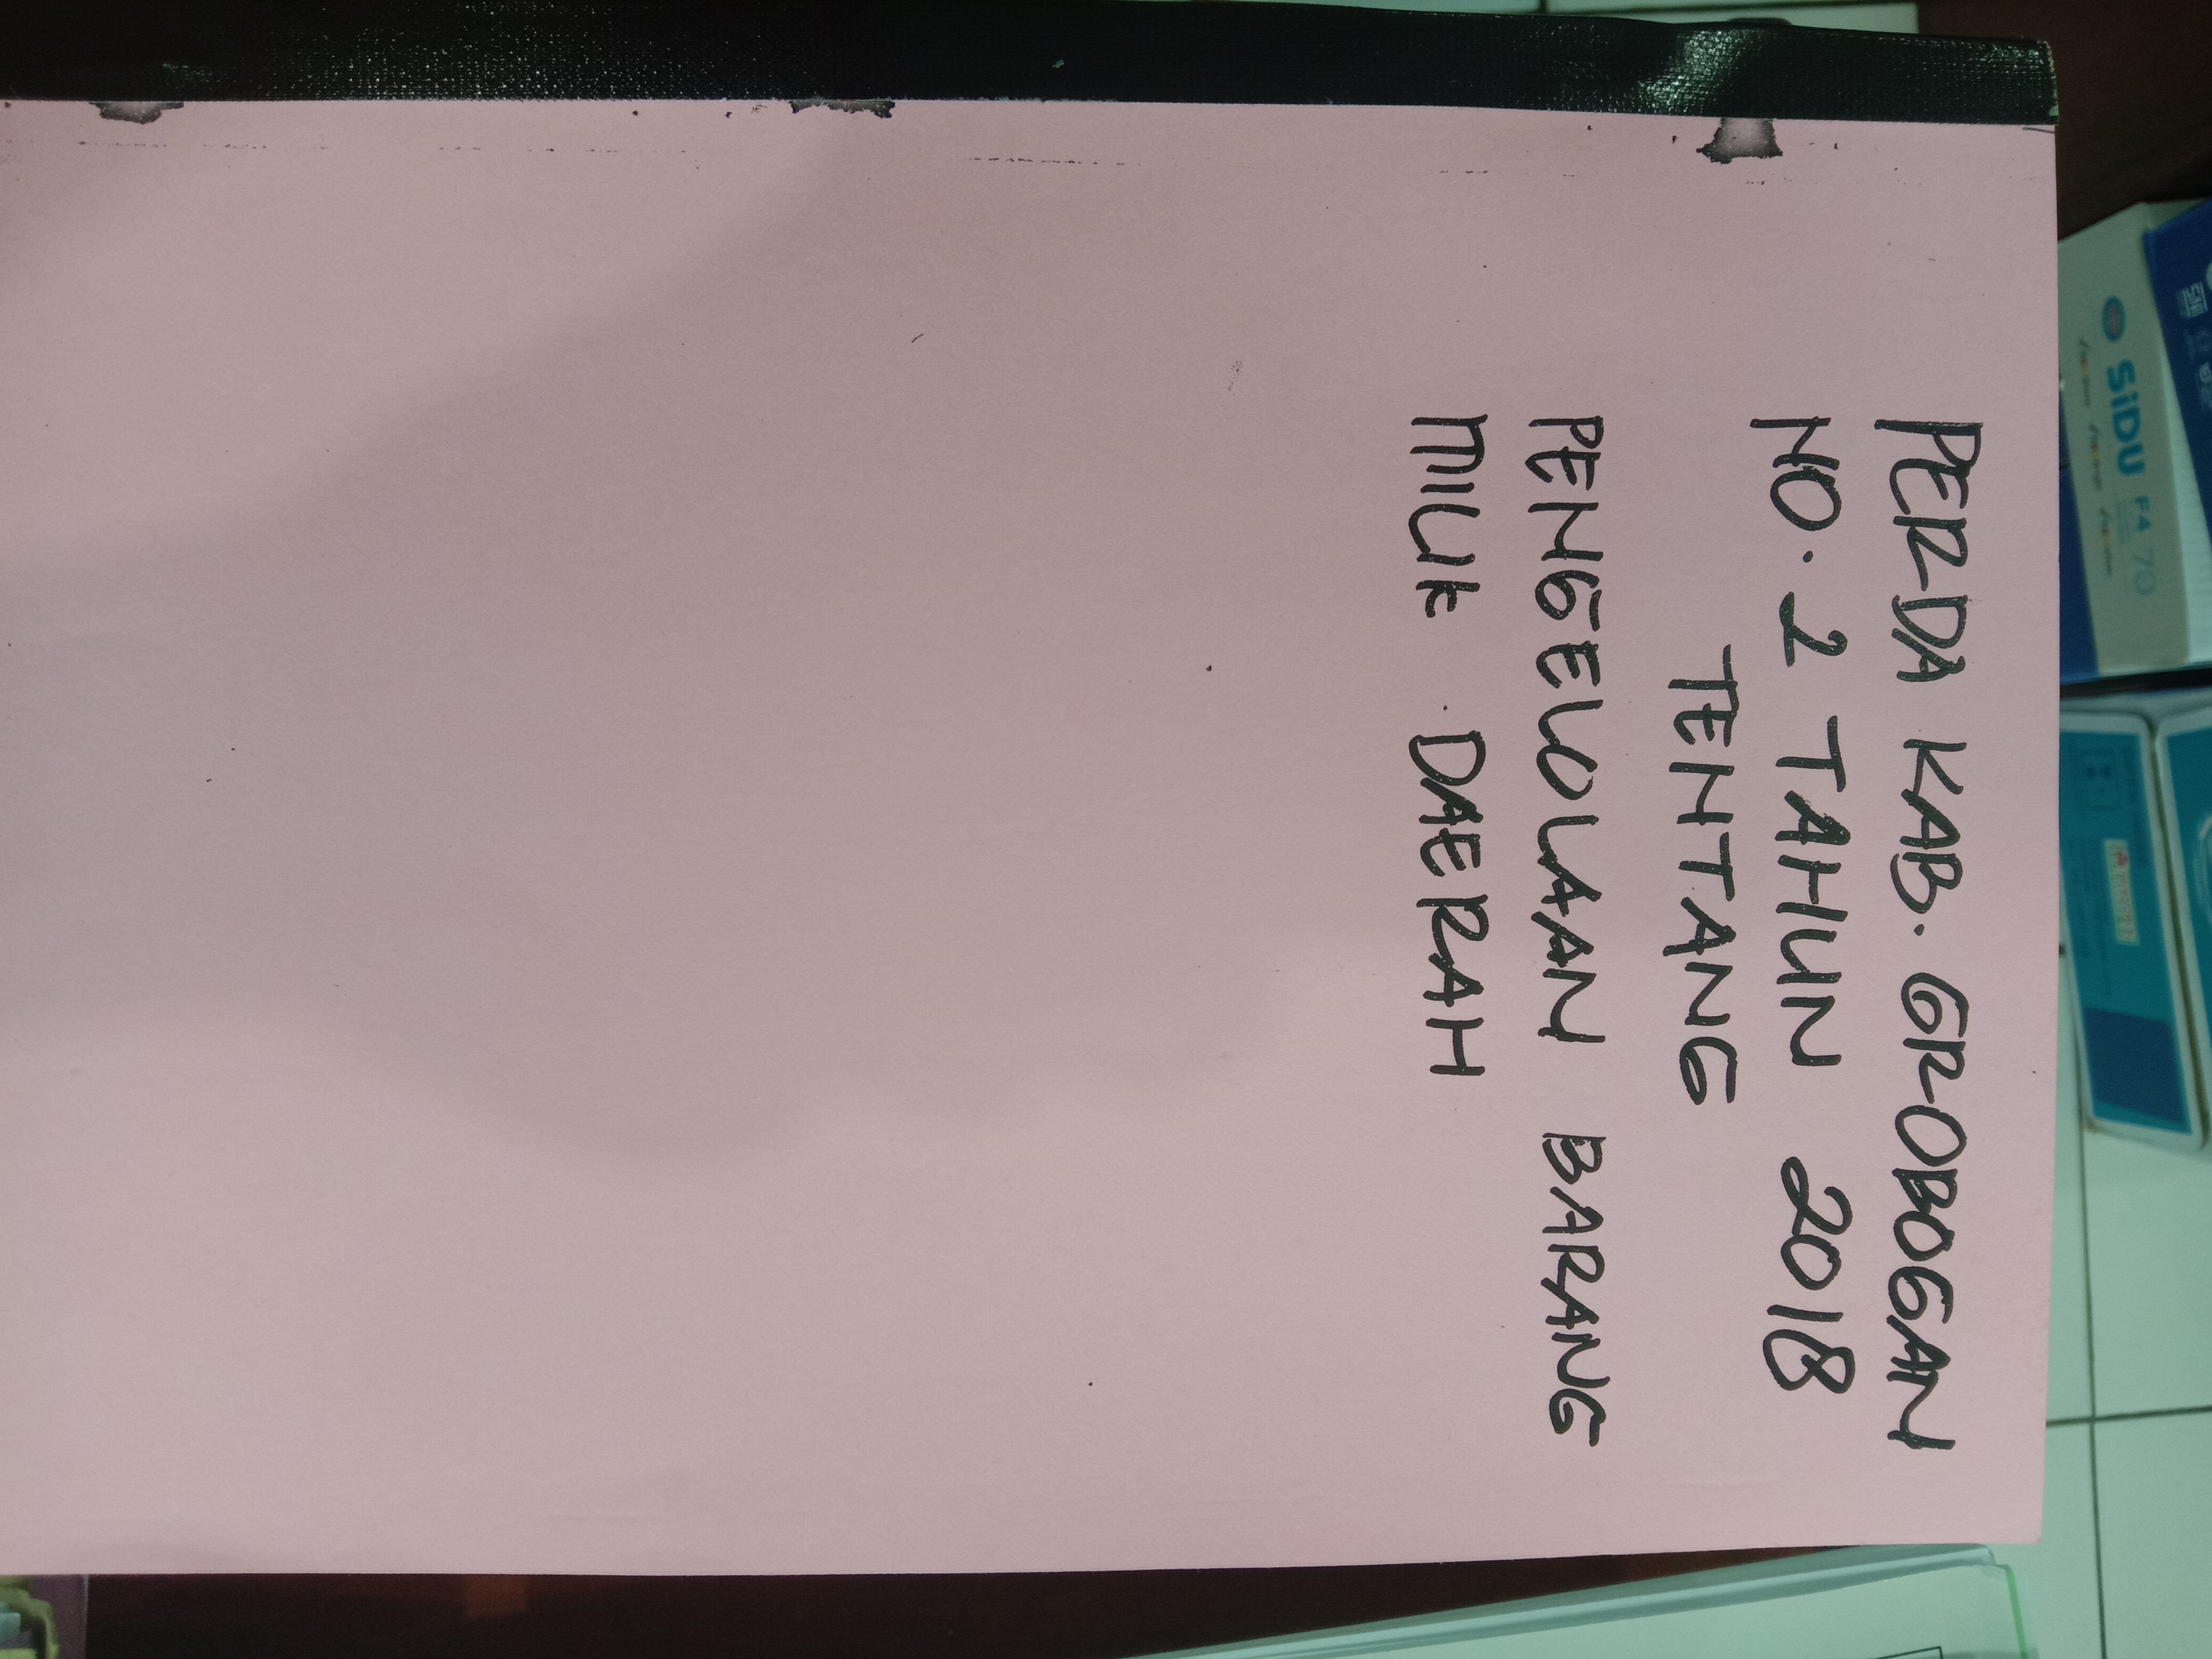 PERDA KAB. GROBOGAN
NO. 2 TAHUN 2018
TENTANG
PENGELOLAAN BARANG
MILIK DAERAH
SiDU F4 70